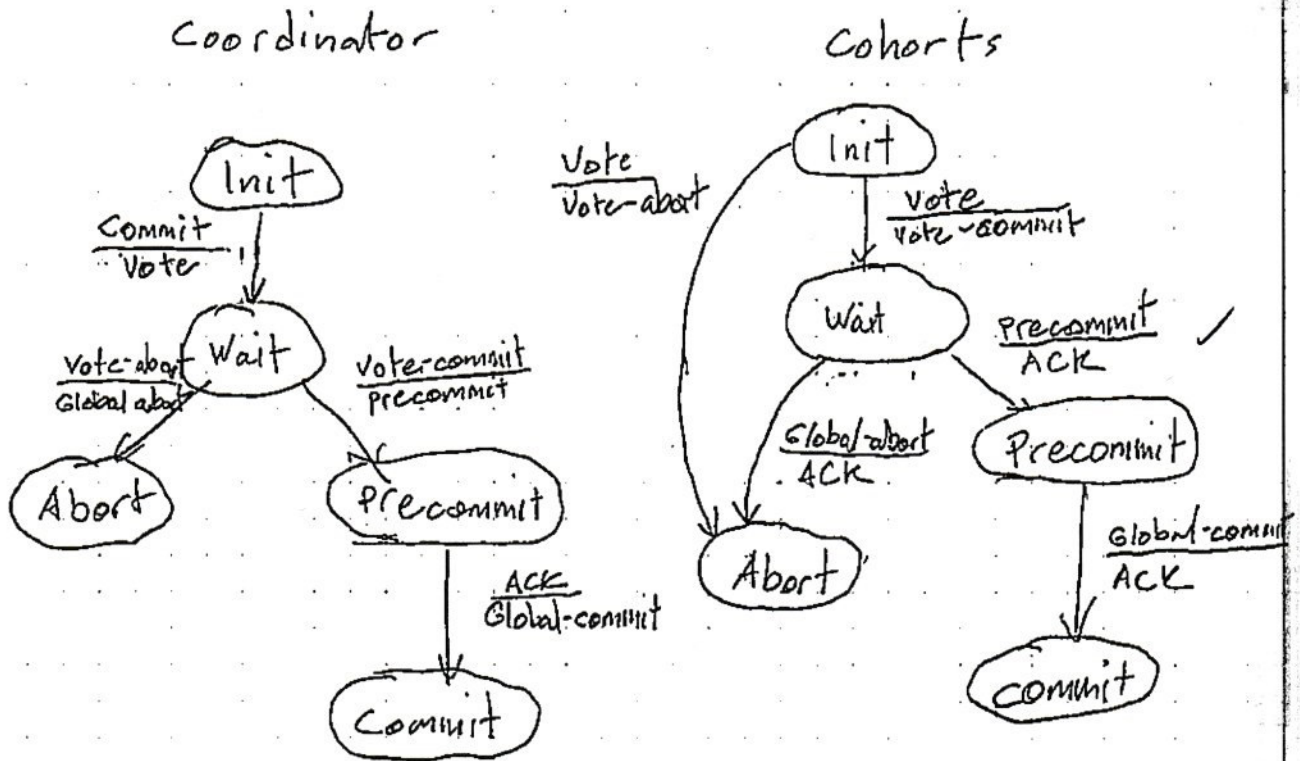 Coordinator
Init
Commit
Vote
Wait
Vote-abort
Global abort
Vote-commit
precommit
Abort
Precommit
ACK
Global-commit
Commit
Cohorts
Init
Vote
Vote-abort
Vote
Vote-commit
Wait
Precommit
ACK
Global-abort
ACK
Precommit
Abort
Global-commit
ACK
commit